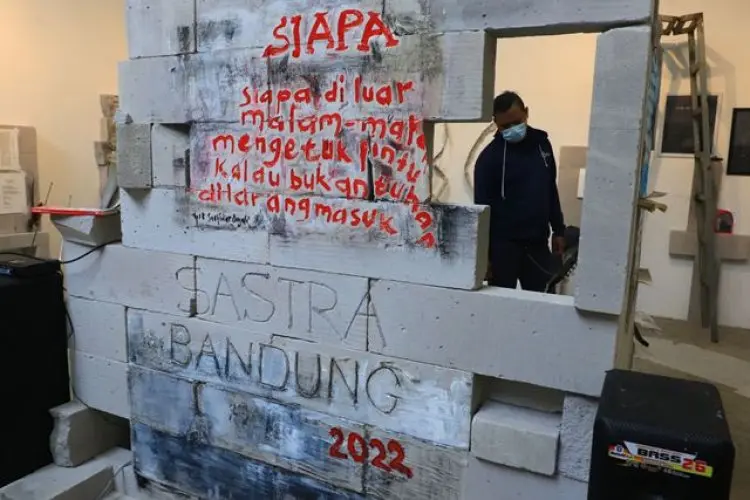 SIAPA
siapa di luar
malam-malam
mengetuk pintu
kalau bukan tuhan
diHarang masuk
SASTRA
BANDUNG
2022
BASS 26